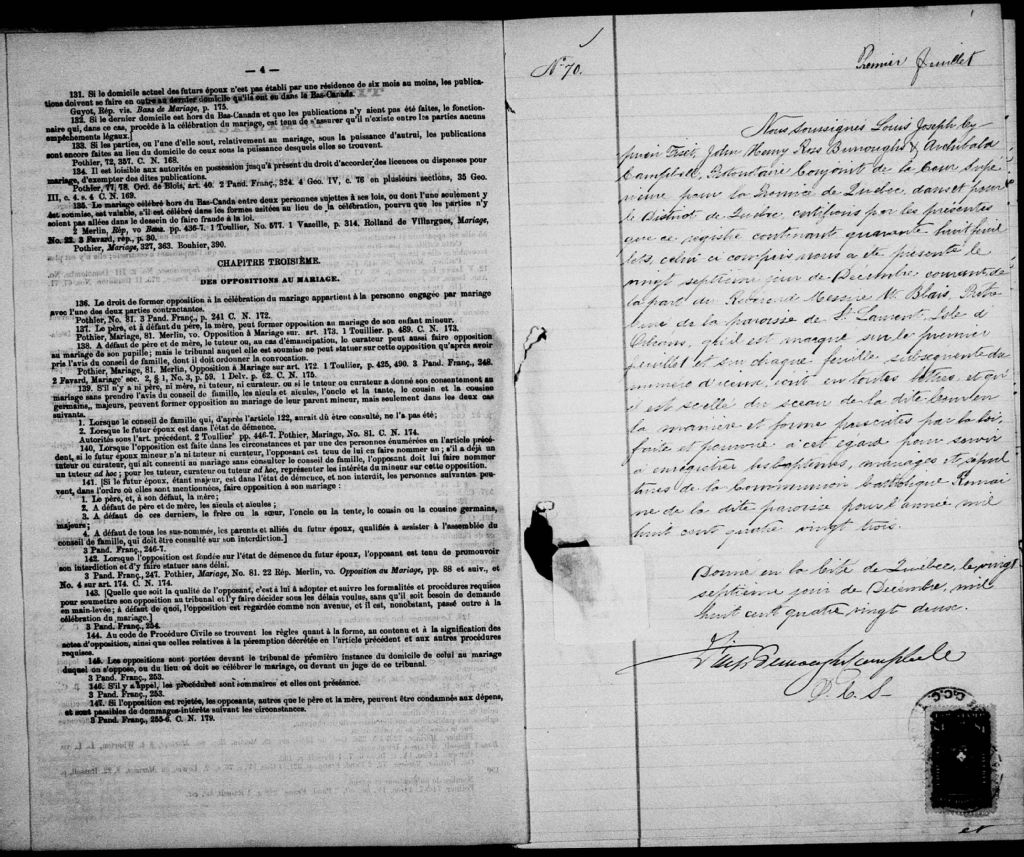 — 4 —
131. Si le domicile actuel des futurs époux n'est pas établi par une résidence de six mois au moins, les publica-
tions doivent se faire en outre au dernier domicile qu'ils ont eu dans le Bas-Canada.
Guyot, Rép. vis. Bans de Mariage, p. 175.
132. Si le dernier domicile est hors du Bas-Canada et que les publications n'y aient pas été faites, le fonction-
naire qui, dans ce cas, procède à la célébration du mariage, est tenu de s'assurer qu'il n'existe entre les parties aucuns
empêchements légaux.]
133. Si les parties, ou l'une d'elles sont, relativement au mariage, sous la puissance d'autrui, les publications
sont encore faites au lieu du domicile de ceux sous la puissance desquels elles se trouvent.
Pothier, 72, 357. C. N. 168.
134. Il est loisible aux autorités en possession jusqu'à présent du droit d'accorder des licences ou dispenses pour
mariage, d'exempter des dites publications.
Pothier, 77, 78. Ord. de Blois, art. 40. 2 Pand. Franç., 324. 4 Geo. IV, c. 76 en plusieurs sections, 35 Geo.
III, c. 4. s. 4 C. N. 169.
135. Le mariage célébré hors du Bas-Canda entre deux personnes sujettes à ses lois, ou dont l'une seulement y
est soumise, est valable, s'il est célébré dans les formes usitées au lieu de la célébration, pourvu que les parties n'y
soient pas allées dans le dessein de faire fraude à la loi.
2 Merlin, Rép, vo Bans. pp. 436-7. 1 Toullier, No. 577. 1 Vazeille, p. 314, Rolland de Villargues, Mariage,
No. 22. 3 Favard, rép., p. 30.
Pothier, Mariage, 327, 363. Bouhier, 390.
CHAPITRE TROISIÈME.
DES OPPOSITIONS AU MARIAGE.
136. Le droit de former opposition à la célébration du mariage appartient à la personne engagée par mariage
avec l'une des deux parties contractantes.
Pothier, No. 81. 3 Pand. Franç., p, 241 C. N. 172.
137. Le père, et à défaut du père, la mère, peut former opposition au mariage de son enfant mineur.
Pothier, Mariage, 81. Merlin, vo. Opposition à Mariage sur. art. 173. 1 Touillier. p. 489. C. N. 173.
138. A défaut de père et de mère, le tuteur ou, au cas d'émancipation, le curateur peut aussi faire opposition
au mariage de son pupille; mais le tribunal auquel elle est soumise ne peut statuer sur cette opposition qu'après avoir
pris l'avis du conseil de famille, dont il doit ordonner la convocation.
Pothier, Mariage, 81. Merlin, Opposition à Mariage sur art. 172. 1 Toulier, p. 425, 490. 3 Pand. Franç., 248.
2 Favard, Mariage' sec. 2, § 1, No. 3, p. 59. 1 Delv. p. 62. C. N. 175.
139. S'il n'y a ni père, ni mère, ni tuteur, ni curateur, ou si le tuteur ou curateur a donné son consentement au
mariage sans prendre l'avis du conseil de famille, les aïeuls et aïeules, l'oncle et la tante, le cousin et la cousine
germains,, majeurs, peuvent former opposition au mariage de leur parent mineur, mais seulement dans les deux cas
suivants.
1. Lorsque le conseil de famille qui, d'après l'article 122, aurait dû être consulté, ne l'a pas été;
2. Lorsque le futur époux est dans l'état de démence.
Autorités sous l'art. précédent. 2 Toulier' pp. 446-7. Pothier, Mariage, No. 81. C. N. 174.
140, Lorsque l'opposition est faite dans les circonstances et par une des personnes énumérées en l'article précé-
dent, si le futur époux mineur n'a ni tuteur ni curateur, l'opposant est tenu de lui en faire nommer un; s'il a déjà un
tuteur ou curateur, qui ait consenti au mariage sans consulter le conseil de famille, l'opposant doit lui faire nommer
un tuteur ad hoc; pour les tuteur, curateur ou tuteur ad hoc, représenter les intérêts du mineur sur cette opposition.
141. [Si le futur époux, étant majeur, est dans l'état de démence, et non interdit, les personnes suivantes peu-
vent, dans l'ordre où elles sont mentionnées, faire opposition à son mariage :
1. Le père, et, à son défaut, la mère;
2. A défaut de père et de mère, les aïeuls et aïeules;
3. A défaut de ces derniers, le frère ou la sœur, l'oncle ou la tente, le cousin ou la cousine germains,
majeurs;
4. A défaut de tous les sus-nommés, les parents et alliés du futur époux, qualifiés à assister à l'assemblée du
conseil de famille, qui doit être consulté sur son interdiction.]
3 Pand. Franç., 246-7.
142. Lorsque l'opposition est fondée sur l'état de démence du futur époux, l'opposant est tenu de promouvoir
son interdiction et d'y faire statuer sans délai.
3 Pand. Franç., 247. Pothier, Mariage, No. 81. 22 Rép. Merlin, vo. Opposition au Mariage, pp. 88 et suiv., et
No. 4 sur art. 174. C. N. 174.
143. [Quelque soit la qualité de l'opposant, c'est à lui à adopter et suivre les formalités et procédures requises
pour soumettre son opposition au tribunal et l'y faire décider sous les délais voulus, sans qu'il soit besoin de demande
en main-levée; à défaut de quoi, l'opposition est regardée comme non avenue, et il est, nonobstant, passé outre à la
célébration du mariage.]
3 Pand. Franç., 254.
144. Au code de Procédure Civile se trouvent les règles quant à la forme, au contenu et à la signification des
actes d'opposition, ainsi que celles relatives à la péremption décrétée en l'article précédent et aux autres procédures
requises.
145. Les oppositions sont portées devant le tribunal de première instance du domicile de celui au mariage
duquel on s'oppose, ou du lieu où doit se célébrer le mariage, ou devant un juge de ce tribunal.
3 Pand. Franç., 253.
146. S'il y a appel, les procédures sont sommaires et elles ont préséance.
3 Pand. Franç., 253.
147. Si l'opposition est rejetée, les opposants, autres que le père et la mère, peuvent être condamnés aux dépens,
et sont passibles de dommages-intérêts suivant les circonstances.
3 Pand. Franç., 255-6. C. N. 179.
No. 70.
Premier feuillet
Nous soussignés Louis Joseph Cy-
prien Fiset, John Henry Ross Burroughs & Archibald
Campbell, Protonotaire Conjoint de la Cour Supé-
rieure pour la Province de Québec, dans et pour
le District de Québec, certifions par les présentes
que ce registre contenant quarante huit feuil
lets, celui ci compris nous a été présenté le
vingt septième jour de Décembre courant de
la part du Révérend Messire W. Blais, Prêtre
Curé de la paroisse de St. Laurent, Isle d'
Orléans, qu'il est marqué sur le premier
feuillet et sur chaque feuille subséquente du
numéro d'iceux, écrit en toutes lettres, et qu'
il est scellé du sceau de la dite Cour en
la manière et forme prescrites par la loi,
faite et pourvue à cet égard pour servir
à enregistrer les baptêmes, mariages et sépul
tures de la Communion Catholique Romai
ne de la dite paroisse pour l'année mil
huit cent quatre vingt trois.
Donné en la Cité de Québec, le vingt
septième jour de Décembre, mil
huit cent quatre vingt deux.
Fiset Burroughs Campbell
P. C. S.